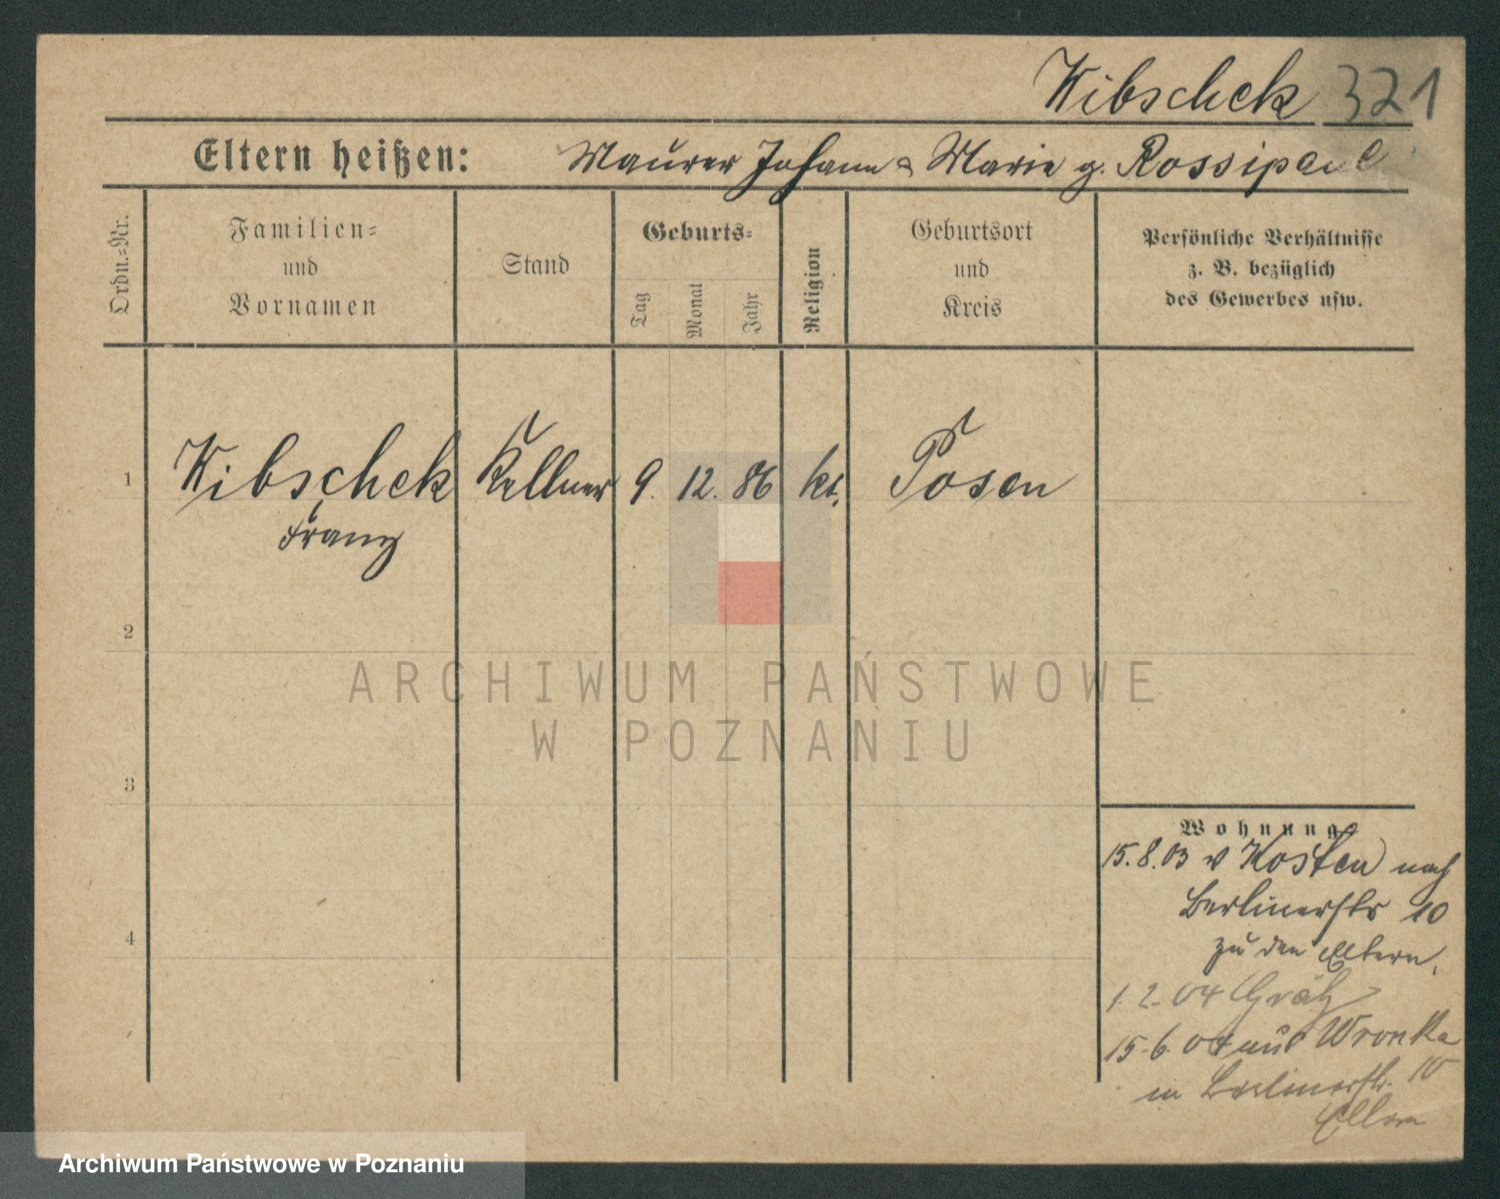 Wibschek 321
Eltern heißen: Maurer Johann & Marie g. Rossipaul
Ordn.-Nr.
Familien-
und
Vornamen
Stand
Geburts-
Tag
Monat
Jahr
Religion
Geburtsort
und
Kreis
Persönliche Verhältnisse
z. B. bezüglich
des Gewerbes usw.
1 Wibschek Kellner 9. 12. 86 kt. Posen
Franz
2
3
4
Wohnung
15.8.03 v Kosten nach
Berlinerstr 10
zu den Eltern.
1.2.04 Grätz
15.6.04 aus Wronke
in Berlinerstr. 10
Eltern
ARCHIWUM PAŃSTWOWE
W POZNANIU
Archiwum Państwowe w Poznaniu